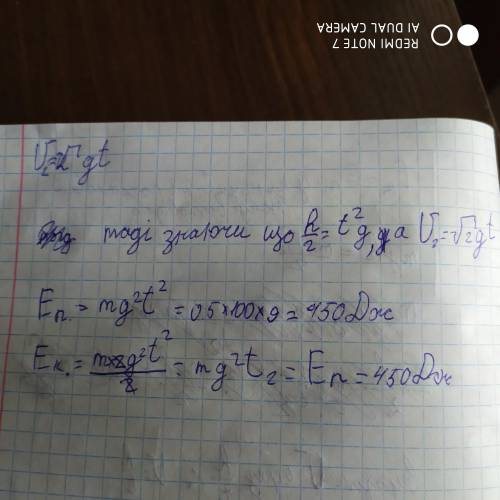 REDMI NOTE 7
AI DUAL CAMERA
V₂=√2gt
тоді знаючи що h/2=t²g, а V₂=√2gt
Eп.=mg²t²=0.5×100×9=450Дж
Eк.=m×2g²t²/2=mg²t₂=Eп=450Дж